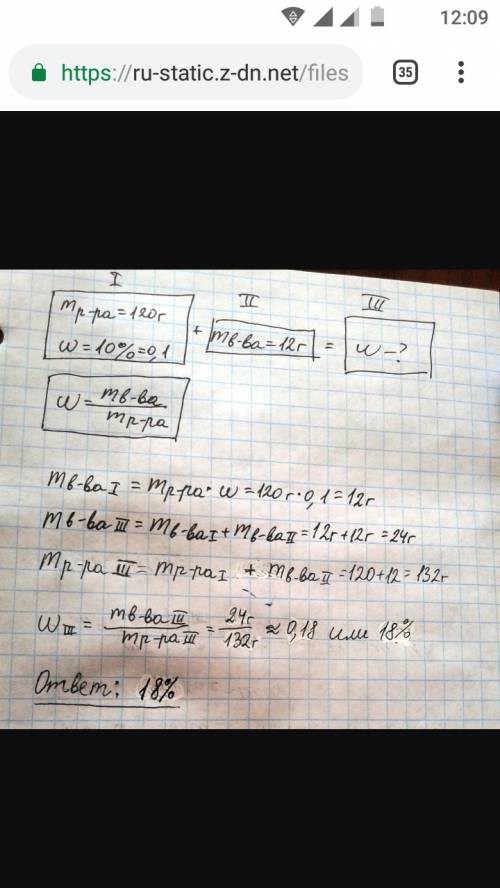 12:09
https://ru-static.z-dn.net/files 35
I II III
mр-ра=120г
ω=10%=0,1 + mв-ва=12г = ω-?
ω = mв-ва
mр-ра
mв-ваI = mр-ра· ω = 120г·0,1=12г
mв-ва III = mв-ваI+mв-ваII=12г+12г=24г
mр-ра III = mр-раI + mв-ваII=120+12=132г
ωIII = mв-ва III = 24г ≈ 0,18 или 18%
mр-ра III 132г
Ответ: 18%